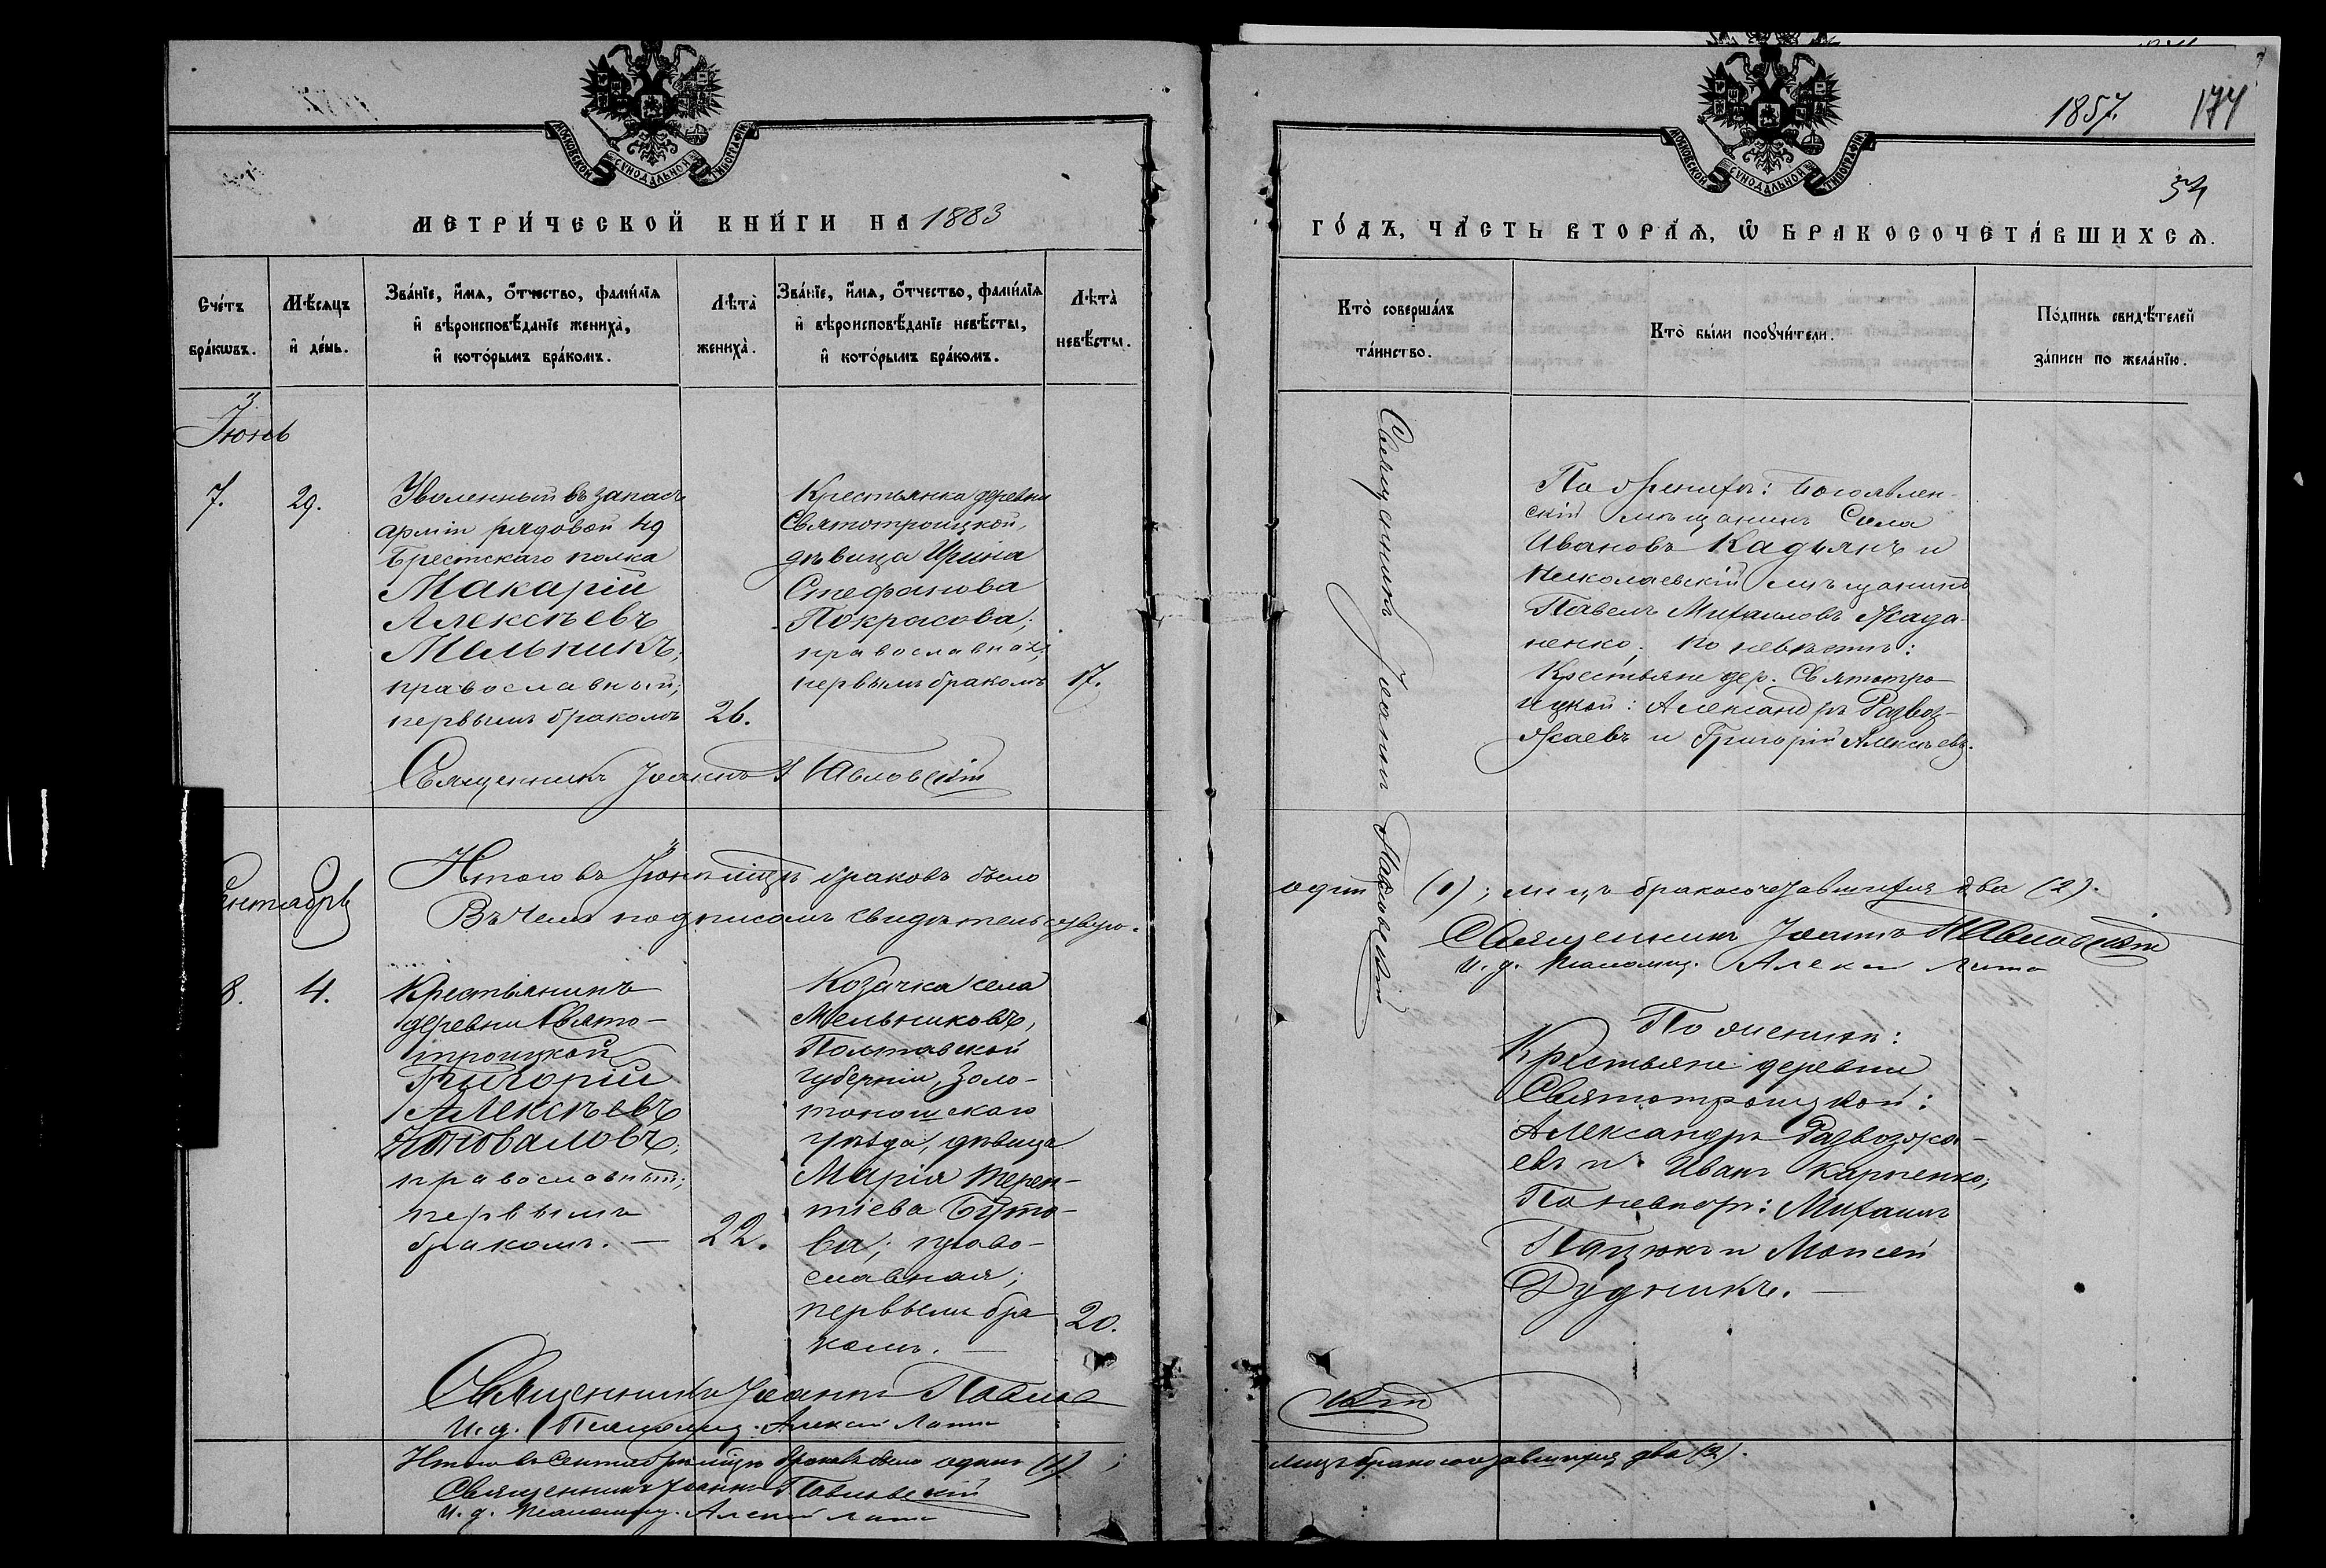 МОСКОВСКОЙ СѴНОДАЛЬНОЙ ТИПОГРАФІИ
МЕТРИ́ЧЕСКОЙ КНИ́ГИ НА 1883
Сче́тъ бра́кѡвъ.
Мѣ́сяцъ и҆ де́нь.
Зва́нїе, и҆́мѧ, ѻ҆́тчество, фамилїѧ
и҆ вѣроисповѣ́данїе жениха̀,
и҆ кото́рымъ бра́комъ.
Лѣта̀
жениха̀.
Зва́нїе, и҆́мѧ, ѻ҆́тчество, фамилїѧ
и҆ вѣроисповѣ́данїе невѣ́сты,
и҆ кото́рымъ бра́комъ.
Лѣта̀
невѣ́сты.
Іюнь
7.
29.
Уволенный въ запасъ
арміи рядовой 49
Брестскаго полка
Макарій
Алексѣевъ
Мельникъ;
православный;
первымъ бракомъ
26.
Крестьянка деревни
Святотроицкой,
дѣвица Ирина
Стефанова
Покрасова;
православная;
первымъ бракомъ
17.
Священникъ Іоаннъ Павловскій
Итого въ Іюнѣ мцѣ браковъ было
Въ чемъ подписомъ свидѣтельствую.
Сентябрь
8.
4.
Крестьянинъ
деревни Свято-
троицкой
Григорій
Алексѣевъ
Коноваловъ;
православный;
первымъ
бракомъ. —
22.
Козачка села
Мельниковъ,
Полтавской
губерніи, Золо-
тоношскаго
уѣзда, дѣвица
Марія Терен-
тіева Буто-
ва; право-
славная;
первымъ бра
комъ. —
20.
Священникъ Іоаннъ Павлов
И. д. Псаломщ. Алексій
Итого въ Сентябрѣ мцѣ браковъ было одинъ (1);
Священникъ Іоаннъ Павловскій
И. д. Псаломщ. Алексій
1857. 174
54
МОСКОВСКОЙ СѴНОДАЛЬНОЙ ТИПОГРАФІИ
ГО́ДЪ, ЧА́СТЬ ВТОРА́Ѧ, Ѡ҆ БРАКОСОЧЕТА́ВШИХСѦ.
Кто̀ соверша́лъ
та́инство.
Кто̀ бы́ли порꙋчи́тели.
По́дпись свидѣ́телей
за́писи по жела́нїю.
Священникъ Іоаннъ Павловскій
По женихѣ: Богоявлен-
скій мѣщанинъ Сила
Ивановъ Кадьянъ и
Николаевскій мѣщанинъ
Павелъ Михаиловъ Жада-
ненко; по невѣстѣ:
Крестьяне дер. Святотро-
ицкой: Александръ Развоз-
жаевъ и Григорій Алексѣевъ.
одинъ (1); лицъ бракосочетавшихся два (2).
Священникъ Іоаннъ Павловскій
И. д. Псаломщ. Алексій
По женихѣ:
Крестьяне деревни
Святотроицкой:
Александръ Развозжа-
евъ и Иванъ Карпенко;
По невѣстѣ: Михаилъ
Пацюкъ и Моисей
Дудникъ. —
скій
лицъ бракосочетавшихся два (2).